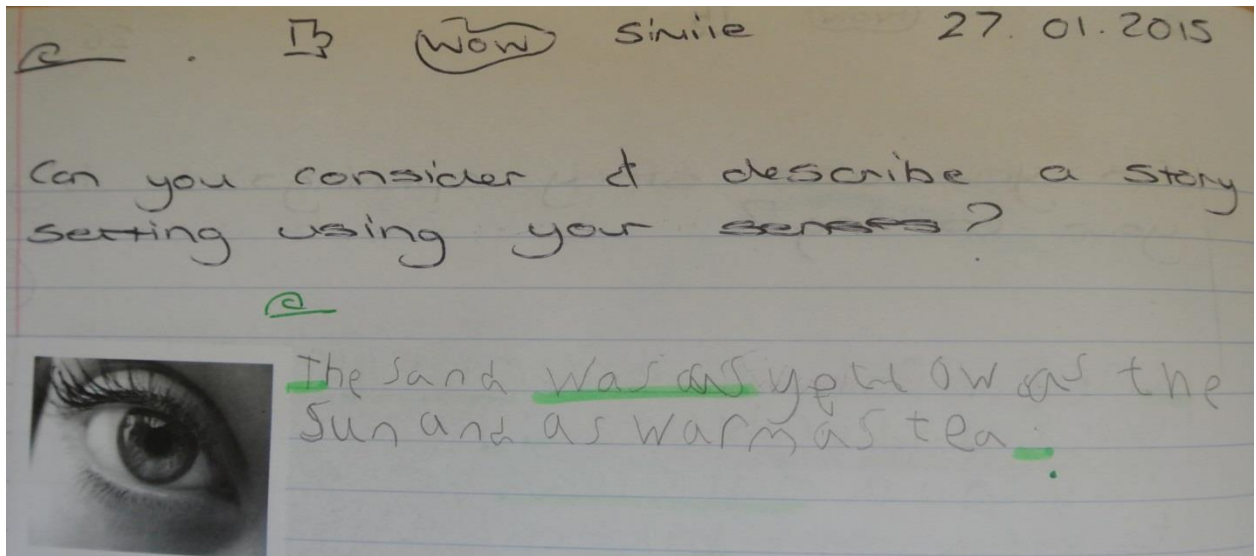 WOW Simile 27.01.2015
Can you consider & describe a story
setting using your senses?
The sand was as yellow as the
Sun and as warm as tea.